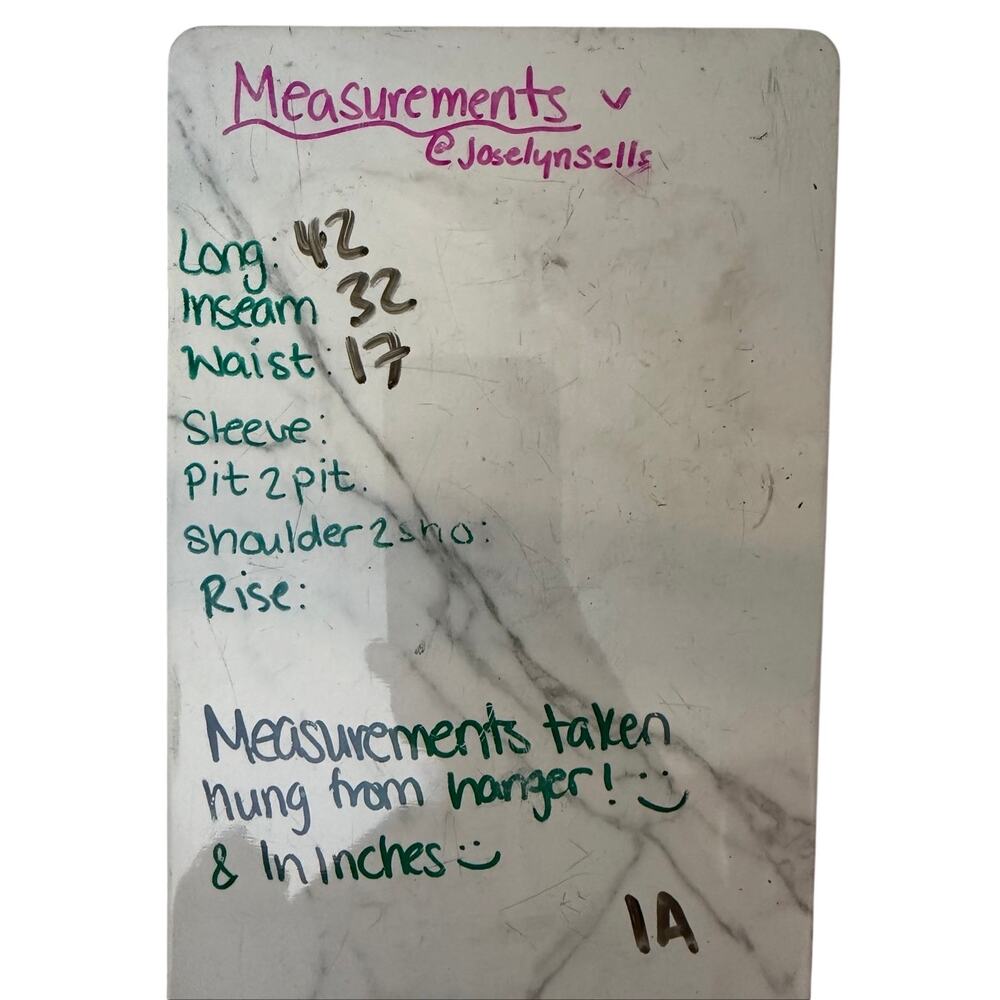 Measurements
@Joselynsells
Long: 42
Inseam 32
Waist: 17
Sleeve:
Pit 2 pit.
Shoulder 2 sho:
Rise:
Measurements taken
hung from hanger! :)
& In Inches :)
1A